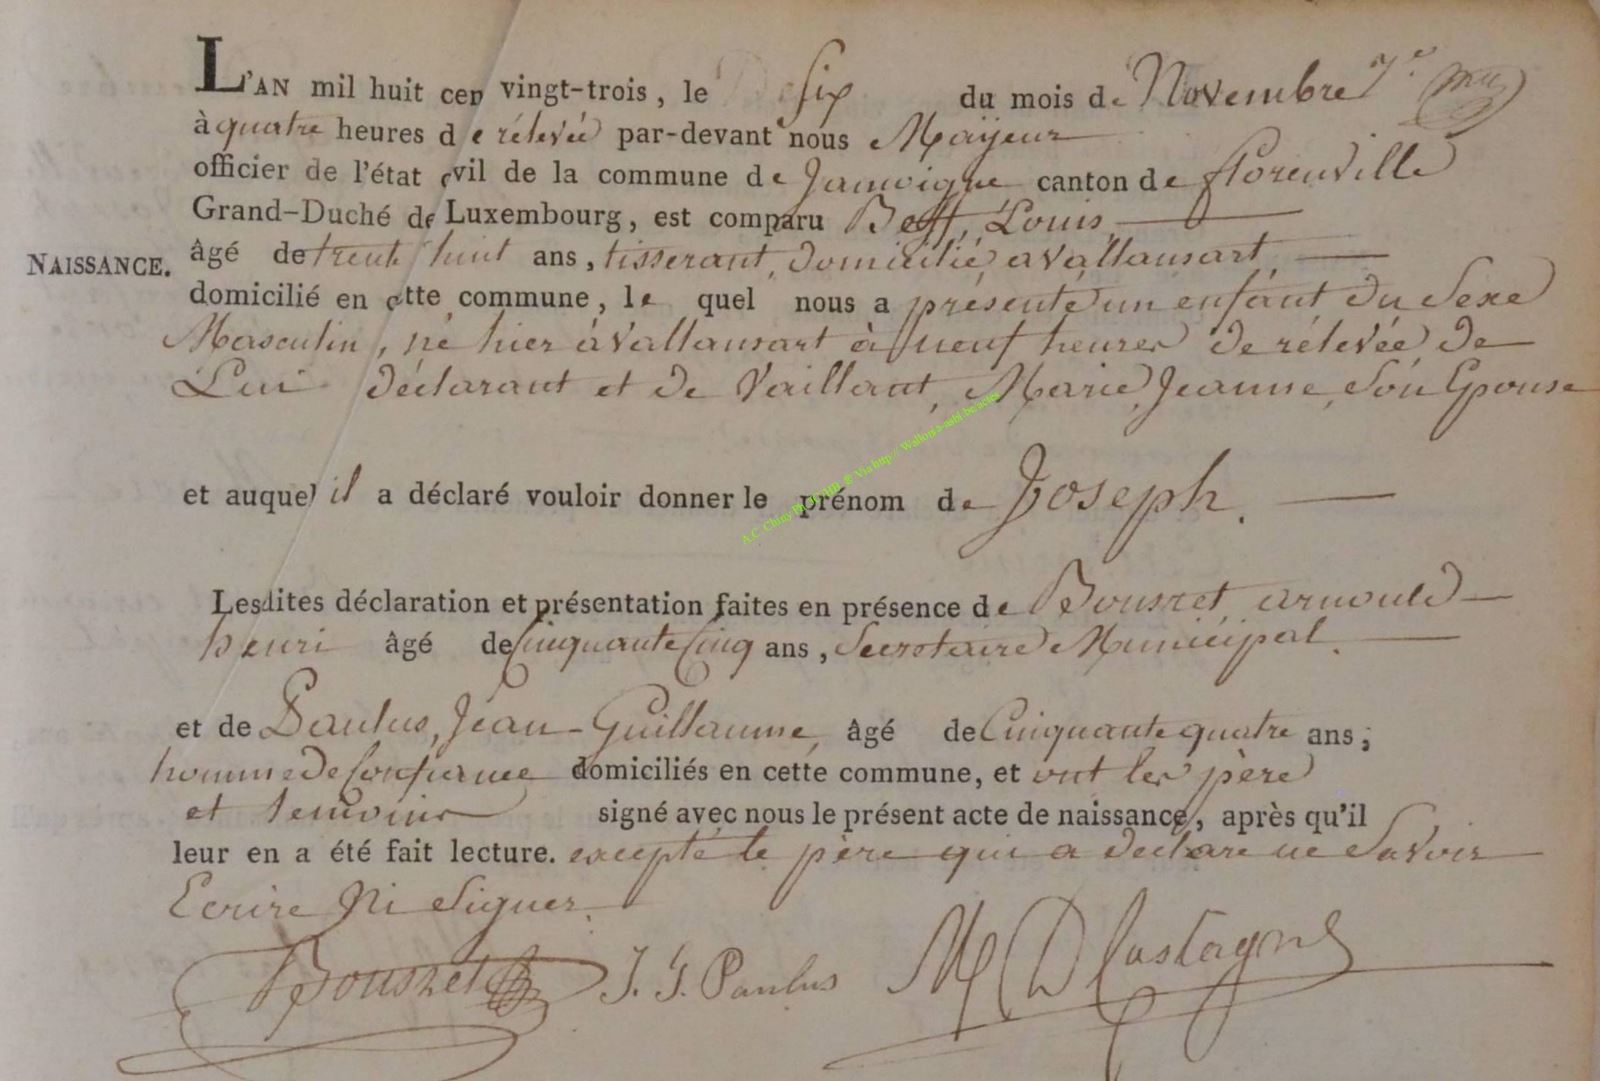 L'AN mil huit cen vingt-trois, le Six du mois de Novembre
à quatre heures de rélevée par-devant nous Mayeur
officier de l'état civil de la commune de Jamoigne canton de florenville
Grand-Duché de Luxembourg, est comparu Louis
NAISSANCE.
âgé de trente huit ans, tisserant, domicilié a Vallansart
domicilié en cette commune, le quel nous a présenté un enfant du Sexe
Masculin, né hier à Vallansart à neuf heures de rélevée de
Lui déclarant et de Vaillant, Marie, Jeanne, Son Epouse
et auquel il a déclaré vouloir donner le prénom de Joseph.
A.C. Chiny Via http// Wallonia-asbl.be/actes
Lesdites déclaration et présentation faites en présence de Bousret arnould
henri âgé de Cinquante Cinq ans, Secretaire Municipal.
et de Paulus, Jean-Guillaume, âgé de Cinquante quatre ans;
homme de Confiance domiciliés en cette commune, et ont les père
et temoins signé avec nous le présent acte de naissance, après qu'il
leur en a été fait lecture. excepté le père qui a declare ne Savoir
Ecrire Ni Signer.
Bousret J. G. Paulus